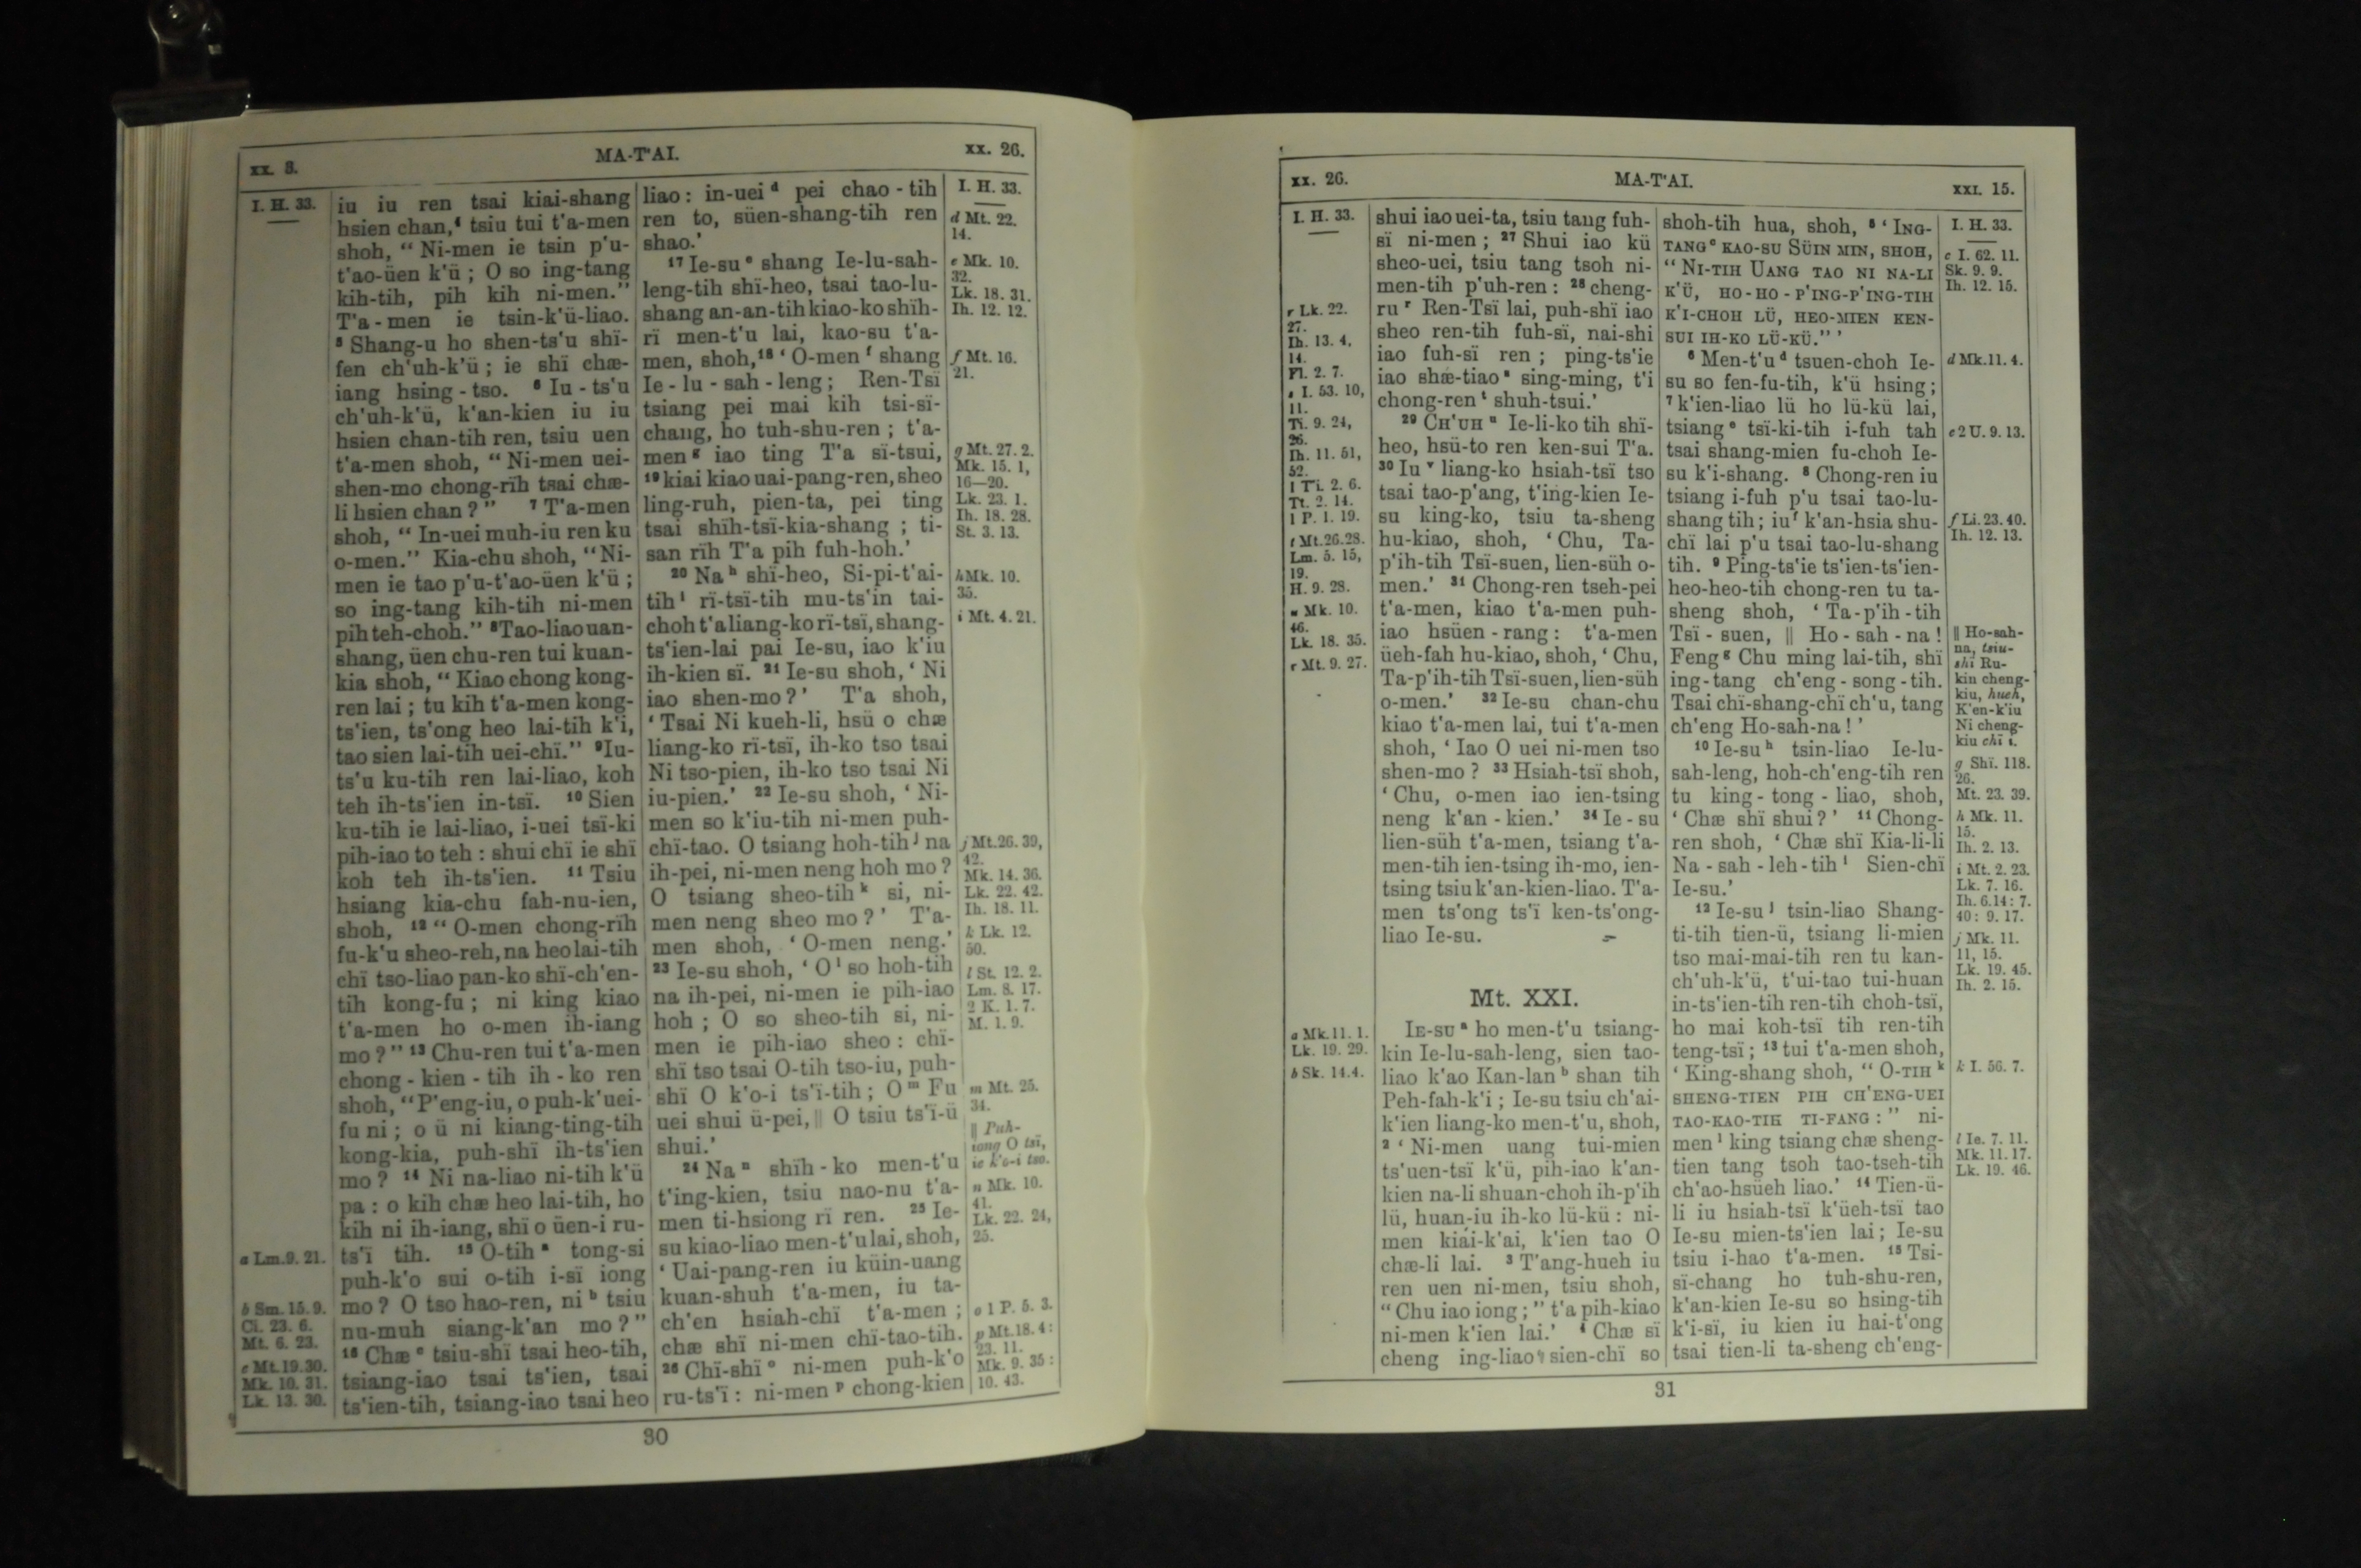 xx. 3.
MA-T'AI.
xx. 26.
I. H. 33.
iu iu ren tsai kiai-shang
hsien chan, tsiu tui t'a-men
shoh, “ Ni-men ie tsin p'u-
t'ao-üen k'ü ; O so ing-tang
kih-tih, pih kih ni-men.”
T'a-men ie tsin-k'ü-liao.
⁵ Shang-u ho shen-ts'u shï-
fen ch'uh-k'ü ; ie shï chæ-
iang hsing-tso. ⁶ Iu-ts'u
ch'uh-k'ü, k'an-kien iu iu
hsien chan-tih ren, tsiu uen
t'a-men shoh, “ Ni-men uei-
shen-mo chong-rïh tsai chæ-
li hsien chan ? ” ⁷ T'a-men
shoh, “ In-uei muh-iu ren ku
o-men.” Kia-chu shoh, “ Ni-
men ie tao p'u-t'ao-üen k'ü ;
so ing-tang kih-tih ni-men
pih teh-choh.” ⁸Tao-liao uan-
shang, üen chu-ren tui kuan-
kia shoh, “ Kiao chong kong-
ren lai ; tu kih t'a-men kong-
ts'ien, ts'ong heo lai-tih k'i,
tao sien lai-tih uei-chï.” ⁹Iu-
ts'u ku-tih ren lai-liao, koh
teh ih-ts'ien in-tsï. ¹⁰ Sien
ku-tih ie lai-liao, i-uei tsï-ki
pih-iao to teh : shui chï ie shï
koh teh ih-ts'ien. ¹¹ Tsiu
hsiang kia-chu fah-nu-ien,
shoh, ¹² “ O-men chong-rïh
fu-k'u sheo-reh, na heo lai-tih
chï tso-liao pan-ko shï-ch'en-
tih kong-fu ; ni king kiao
t'a-men ho o-men ih-iang
mo ? ” ¹³ Chu-ren tui t'a-men
chong-kien-tih ih-ko ren
shoh, “P'eng-iu, o puh-k'uei-
fu ni ; o ü ni kiang-ting-tih
kong-kia, puh-shï ih-ts'ien
mo ? ¹⁴ Ni na-liao ni-tih k'ü
pa : o kih chæ heo lai-tih, ho
kih ni ih-iang, shï o üen-i ru-
ts'ï tih. ¹⁵ O-tih ᵃ tong-si
puh-k'o sui o-tih i-sï iong
mo ? O tso hao-ren, ni ᵇ tsiu
nu-muh siang-k'an mo ? ”
¹⁶ Chæ ᶜ tsiu-shï tsai heo-tih,
tsiang-iao tsai ts'ien, tsai
ts'ien-tih, tsiang-iao tsai heo
a Lm. 9. 21.
b Sm. 15. 9.
Ci. 23. 6.
Mt. 6. 23.
c Mt. 19. 30.
Mk. 10. 31.
Lk. 13. 30.
liao : in-uei ᵈ pei chao-tih
ren to, süen-shang-tih ren
shao.'
¹⁷ Ie-su ᵉ shang Ie-lu-sah-
leng-tih shï-heo, tsai tao-lu-
shang an-an-tih kiao-ko shïh-
rï men-t'u lai, kao-su t'a-
men, shoh, ¹⁸ ‘ O-men ᶠ shang
Ie-lu-sah-leng ; Ren-Tsï
tsiang pei mai kih tsi-sï-
chang, ho tuh-shu-ren ; t'a-
men ᵍ iao ting T'a sï-tsui,
¹⁹ kiai kiao uai-pang-ren, sheo
ling-ruh, pien-ta, pei ting
tsai shïh-tsï-kia-shang ; ti-
san rïh T'a pih fuh-hoh.'
²⁰ Na ʰ shï-heo, Si-pi-t'ai-
tih ⁱ rï-tsï-tih mu-ts'in tai-
choh t'a liang-ko rï-tsï, shang-
ts'ien-lai pai Ie-su, iao k'iu
ih-kien sï. ²¹ Ie-su shoh, ‘ Ni
iao shen-mo ? ' T'a shoh,
‘ Tsai Ni kueh-li, hsü o chæ
liang-ko rï-tsï, ih-ko tso tsai
Ni tso-pien, ih-ko tso tsai Ni
iu-pien.' ²² Ie-su shoh, ‘ Ni-
men so k'iu-tih ni-men puh-
chï-tao. O tsiang hoh-tih ʲ na
ih-pei, ni-men neng hoh mo ?
O tsiang sheo-tih ᵏ si, ni-
men neng sheo mo ? ' T'a-
men shoh, ‘ O-men neng.'
²³ Ie-su shoh, ‘ O ˡ so hoh-tih
na ih-pei, ni-men ie pih-iao
hoh ; O so sheo-tih si, ni-
men ie pih-iao sheo : chï-
shï tso tsai O-tih tso-iu, puh-
shï O k'o-i ts'ï-tih ; O ᵐ Fu
uei shui ü-pei, ‖ O tsiu ts'ï-ü
shui.'
²⁴ Na ⁿ shïh-ko men-t'u
t'ing-kien, tsiu nao-nu t'a-
men ti-hsiong rï ren. ²⁵ Ie-
su kiao-liao men-t'u lai, shoh,
‘ Uai-pang-ren iu küin-uang
kuan-shuh t'a-men, iu ta-
ch'en hsiah-chï t'a-men ;
chæ shï ni-men chï-tao-tih.
²⁶ Chï-shï ᵒ ni-men puh-k'o
ru-ts'ï : ni-men ᵖ chong-kien
I. H. 33.
d Mt. 22.
14.
e Mk. 10.
32.
Lk. 18. 31.
Ih. 12. 12.
f Mt. 16.
21.
g Mt. 27. 2.
Mk. 15. 1,
16—20.
Lk. 23. 1.
Ih. 18. 28.
St. 3. 13.
h Mk. 10.
35.
i Mt. 4. 21.
j Mt. 26. 39,
42.
Mk. 14. 36.
Lk. 22. 42.
Ih. 18. 11.
k Lk. 12.
50.
l St. 12. 2.
Lm. 8. 17.
2 K. 1. 7.
M. 1. 9.
m Mt. 25.
34.
‖ Puh-
iong O tsï,
ie k'o-i tso.
n Mk. 10.
41.
Lk. 22. 24,
25.
o 1 P. 5. 3.
p Mt. 18. 4 :
23. 11.
Mk. 9. 35 :
10. 43.
30
xx. 26.
MA-T'AI.
XXI. 15.
I. H. 33.
r Lk. 22.
27.
Ih. 13. 4,
14.
Fl. 2. 7.
s I. 53. 10,
11.
Ti. 9. 24,
26.
Ih. 11. 51,
52.
1 Ti. 2. 6.
Tt. 2. 14.
1 P. 1. 19.
t Mt. 26. 28.
Lm. 5. 15,
19.
H. 9. 28.
u Mk. 10.
46.
Lk. 18. 35.
Mt. 9. 27.
a Mk. 11. 1.
Lk. 19. 29.
b Sk. 14. 4.
shui iao uei-ta, tsiu tang fuh-
sï ni-men ; ²⁷ Shui iao kü
sheo-uei, tsiu tang tsoh ni-
men-tih p'uh-ren : ²⁸ cheng-
ru ʳ Ren-Tsï lai, puh-shï iao
sheo ren-tih fuh-sï, nai-shi
iao fuh-sï ren ; ping-ts'ie
iao shæ-tiao ˢ sing-ming, t'i
chong-ren ᵗ shuh-tsui.'
²⁹ CH'UH ᵘ Ie-li-ko tih shï-
heo, hsü-to ren ken-sui T'a.
³⁰ Iu ᵛ liang-ko hsiah-tsï tso
tsai tao-p'ang, t'ing-kien Ie-
su king-ko, tsiu ta-sheng
hu-kiao, shoh, ‘ Chu, Ta-
p'ih-tih Tsï-suen, lien-süh o-
men.' ³¹ Chong-ren tseh-pei
t'a-men, kiao t'a-men puh-
iao hsüen-rang : t'a-men
üeh-fah hu-kiao, shoh, ‘ Chu,
Ta-p'ih-tih Tsï-suen, lien-süh
o-men.' ³² Ie-su chan-chu
kiao t'a-men lai, tui t'a-men
shoh, ‘ Iao O uei ni-men tso
shen-mo ? ³³ Hsiah-tsï shoh,
‘ Chu, o-men iao ien-tsing
neng k'an-kien.' ³⁴ Ie-su
lien-süh t'a-men, tsiang t'a-
men-tih ien-tsing ih-mo, ien-
tsing tsiu k'an-kien-liao. T'a-
men ts'ong ts'ï ken-ts'ong-
liao Ie-su.
Mt. XXI.
IE-SU ᵃ ho men-t'u tsiang-
kin Ie-lu-sah-leng, sien tao-
liao k'ao Kan-lan ᵇ shan tih
Peh-fah-k'i ; Ie-su tsiu ch'ai-
k'ien liang-ko men-t'u, shoh,
² ‘ Ni-men uang tui-mien
ts'uen-tsï k'ü, pih-iao k'an-
kien na-li shuan-choh ih-p'ih
lü, huan-iu ih-ko lü-kü : ni-
men kiai-k'ai, k'ien tao O
chæ-li lai. ³ T'ang-hueh iu
ren uen ni-men, tsiu shoh,
“ Chu iao iong ; ” t'a pih-kiao
ni-men k'ien lai.' ⁴ Chæ sï
cheng ing-liao sien-chï so
shoh-tih hua, shoh, ⁵ ‘ ING-
TANG ᶜ KAO-SU SÜIN MIN, SHOH,
“ NI-TIH UANG TAO NI NA-LI
K'Ü, HO-HO-P'ING-P'ING-TIH
K'I-CHOH LÜ, HEO-MIEN KEN-
SUI IH-KO LÜ-KÜ.” '
⁶ Men-t'u ᵈ tsuen-choh Ie-
su so fen-fu-tih, k'ü hsing ;
⁷ k'ien-liao lü ho lü-kü lai,
tsiang ᵉ tsï-ki-tih i-fuh tah
tsai shang-mien fu-choh Ie-
su k'i-shang. ⁸ Chong-ren iu
tsiang i-fuh p'u tsai tao-lu-
shang tih ; iu ᶠ k'an-hsia shu-
chï lai p'u tsai tao-lu-shang
tih. ⁹ Ping-ts'ie ts'ien-ts'ien-
heo-heo-tih chong-ren tu ta-
sheng shoh, ‘ Ta-p'ih-tih
Tsï-suen, ‖ Ho-sah-na !
Feng ᵍ Chu ming lai-tih, shï
ing-tang ch'eng-song-tih.
Tsai chï-shang-chï ch'u, tang
ch'eng Ho-sah-na ! '
¹⁰ Ie-su ʰ tsin-liao Ie-lu-
sah-leng, hoh-ch'eng-tih ren
tu king-tong-liao, shoh,
‘ Chæ shï shui ? ' ¹¹ Chong-
ren shoh, ‘ Chæ shï Kia-li-li
Na-sah-leh-tih ⁱ Sien-chï
Ie-su.'
¹² Ie-su ʲ tsin-liao Shang-
ti-tih tien-ü, tsiang li-mien
tso mai-mai-tih ren tu kan-
ch'uh-k'ü, t'ui-tao tui-huan
in-ts'ien-tih ren-tih choh-tsï,
ho mai koh-tsï tih ren-tih
teng-tsï ; ¹³ tui t'a-men shoh,
‘ King-shang shoh, “ O-TIH ᵏ
SHENG-TIEN PIH CH'ENG-UEI
TAO-KAO-TIH TI-FANG : ” ni-
men ˡ king tsiang chæ sheng-
tien tang tsoh tao-tseh-tih
ch'ao-hsüeh liao.' ¹⁴ Tien-ü-
li iu hsiah-tsï k'üeh-tsï tao
Ie-su mien-ts'ien lai ; Ie-su
tsiu i-hao t'a-men. ¹⁵ Tsi-
sï-chang ho tuh-shu-ren,
k'an-kien Ie-su so hsing-tih
k'i-sï, iu kien iu hai-t'ong
tsai tien-li ta-sheng ch'eng-
I. H. 33.
c I. 62. 11.
Sk. 9. 9.
Ih. 12. 15.
d Mk. 11. 4.
e 2 U. 9. 13.
f Li. 23. 40.
Ih. 12. 13.
‖ Ho-sah-
na, tsiu-
shï Ru-
kin cheng-
kiu, hueh,
K'en-k'iu
Ni cheng-
kiu chï i.
g Shï. 118.
26.
Mt. 23. 39.
h Mk. 11.
15.
Ih. 2. 13.
i Mt. 2. 23.
Lk. 7. 16.
Ih. 6. 14 : 7.
40 : 9. 17.
j Mk. 11.
11, 15.
Lk. 19. 45.
Ih. 2. 15.
k I. 56. 7.
l Ie. 7. 11.
Mk. 11. 17.
Lk. 19. 46.
31